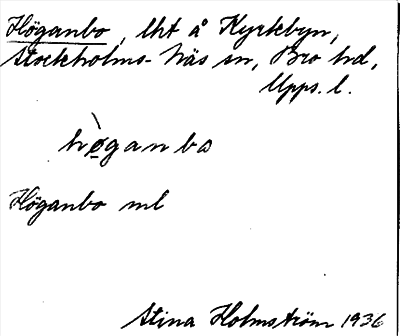 Höganbo, lht å Kyrkebyn,
Stockholms-Näs sn, Bro hd,
Upps. l.
hø̀ganbo
Höganbo ml
Stina Holmström 1936